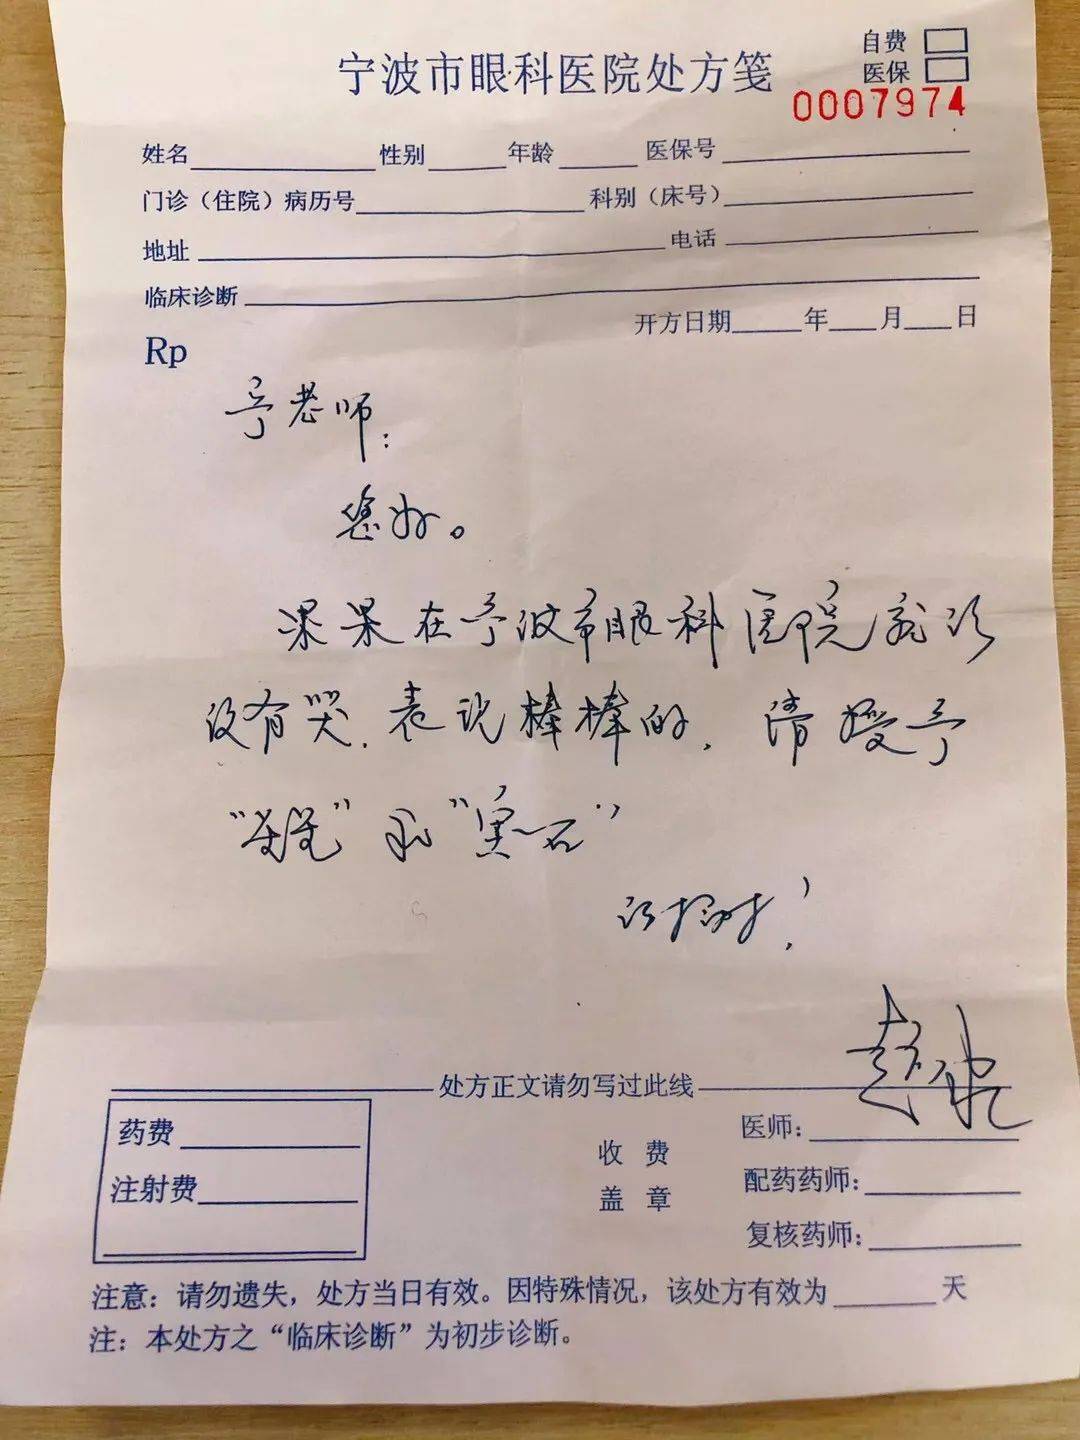 宁波市眼科医院处方笺
自费
医保
0007974
姓名 性别 年龄 医保号
门诊（住院）病历号 科别（床号）
地址 电话
临床诊断
开方日期 年 月 日
Rp
宁老师：
您好。
果果在宁波市眼科医院就诊
没有哭，表现棒棒的，请授予
“” 和 “宝石”
处方正文请勿写过此线
药费
注射费
收费
盖章
医师：
配药药师：
复核药师：
注意：请勿遗失，处方当日有效。因特殊情况，该处方有效为 天
注：本处方之“临床诊断”为初步诊断。